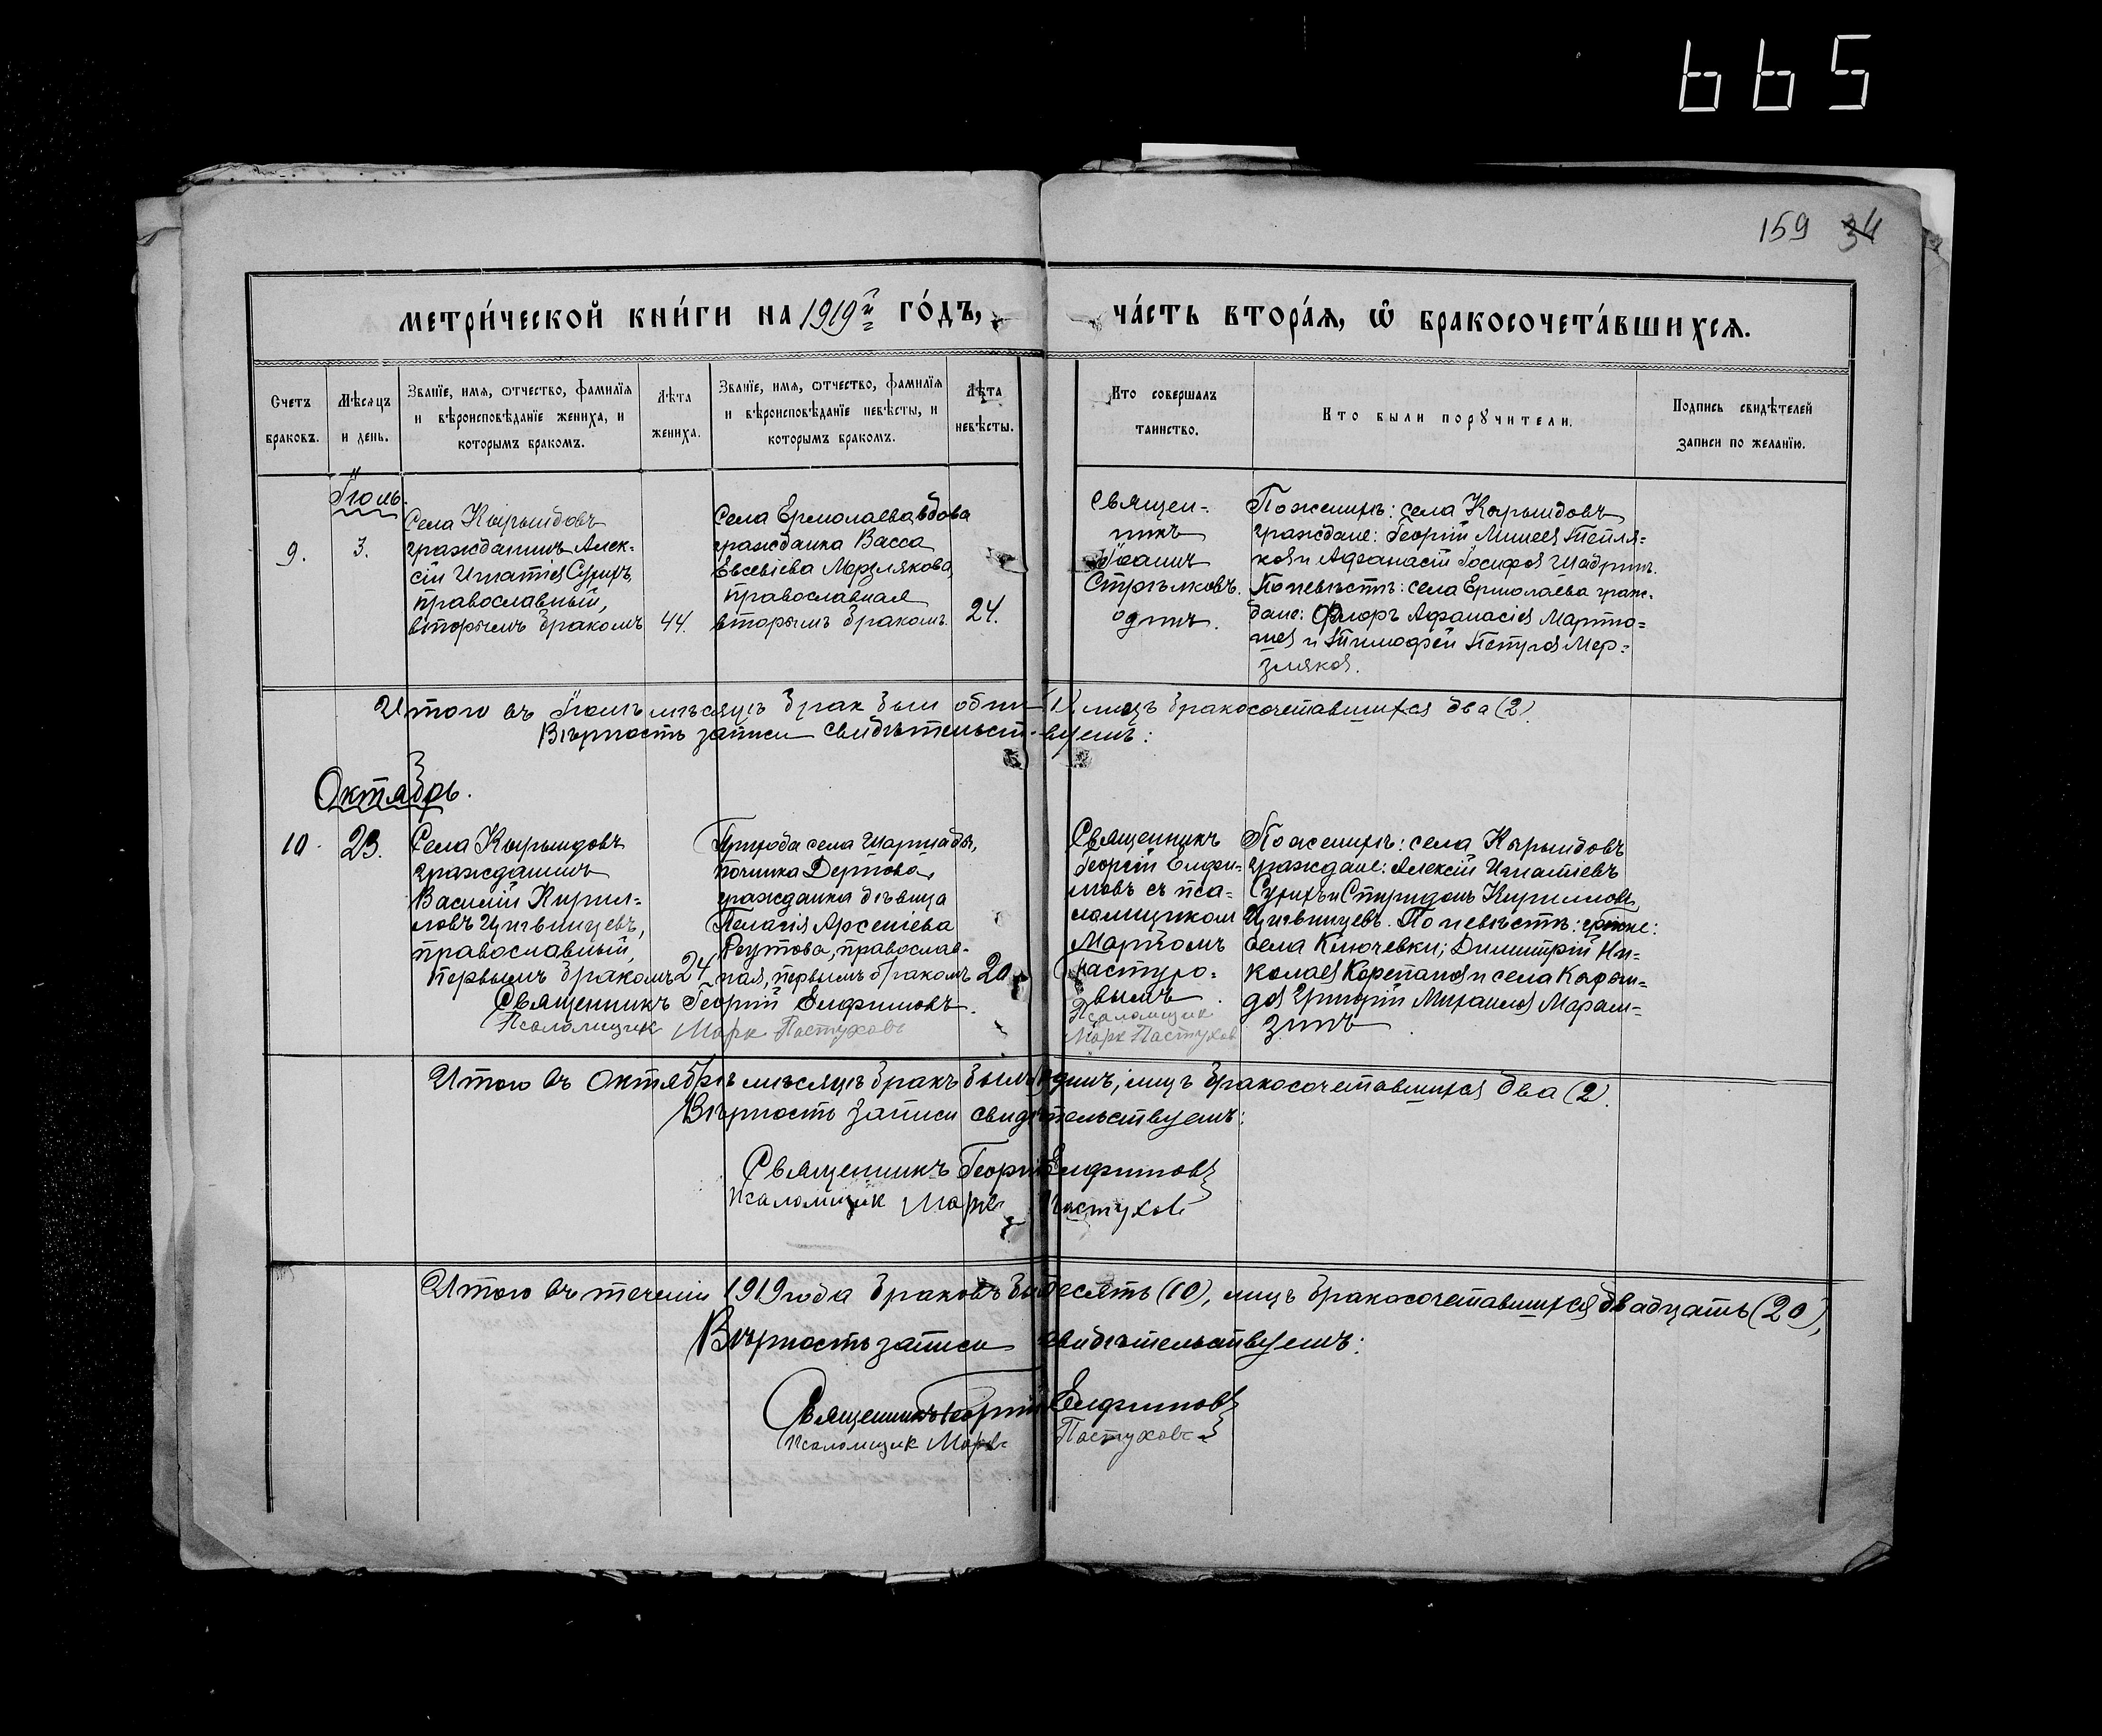 665
159 34
МЕТРИ́ЧЕСКОЙ КНИ́ГИ НА 1919й ГО́ДЪ, ЧА́СТЬ ВТОРА́Я, Ѿ БРАКОСОЧЕТА́ВШИХСЯ.
Счетъ браковъ.
Мѣсяцъ и день.
Званїе, имя, ѿтчество, фамилїя
и вѣроисповѣданїе жениха, и
которымъ бракомъ.
Лѣта
жениха.
Званїе, имя, ѿтчество, фамилїя
и вѣроисповѣданїе невѣсты, и
которымъ бракомъ.
Лѣта
невѣсты.
Кто совершалъ
таинство.
Кто были порꙋчители.
Подпись свидѣтелей
записи по желанїю.
Іюль.
9.
3.
Села
гражданинъ Алек-
сій Игнатіев
православный,
вторымъ бракомъ
44.
Села Ермолаева вдова
гражданка Васса
Евсевіева Мерзлякова,
православная
вторымъ бракомъ.
24.
Священ-
никъ
Іоаннъ
Стрѣлковъ.
одинъ.
По женихѣ: села
граждане: Георгій
и Афанасій Іосифов Шадринъ.
По невѣстѣ: села Ермолаева граж-
дане: Флоръ Афанасіев Марты-
нов и Тимофей Петров Мер-
зляков.
Итого въ Іюлѣ мѣсяцѣ брак был один (1) лицъ бракосочетавшихся два (2).
Вѣрность записи свидѣтельствуемъ:
Октябрь.
10.
23.
Села
гражданинъ
Василій Кирил-
ловъ
православный,
первымъ бракомъ
24
Прихода села
починка
гражданка дѣвица
Пелагія Арсеніева
Реутова, православ-
ная, первымъ бракомъ
20
Священникъ
Георгій Елфи-
мовъ съ пса-
ломщиком
Маркомъ
Пастухо-
вымъ.
Псаломщик
Марк Пастухов
По женихѣ: села
граждане: Алексій Игнатіевъ
и Спиридонъ Кирилловъ
По невѣстѣ:
села Ключевки; Димитрій Ни-
колаев Корепанов и села
Григорій Михаилов
Священникъ Георгій Елфимовъ.
Псаломщик Марк Пастуховъ
Итого въ Октябрѣ мѣсяцѣ бракъ былъ одинъ, лицъ бракосочетавшихся два (2).
Вѣрность записи свидѣтельствуемъ:
Священникъ Георгій Елфимовъ
псаломщик Маркъ Пастуховъ
Итого въ теченіи 1919 года браковъ десять (10), лицъ бракосочетавшихся двадцать (20),
Вѣрность записи свидѣтельствуемъ:
Священникъ Георгій Елфимовъ
псаломщик Маркъ Пастуховъ